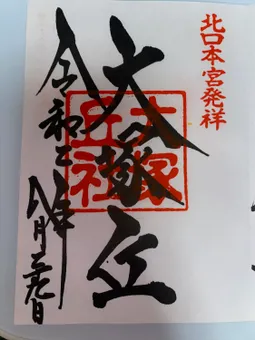 北口本宮発祥
大塚丘
大塚
丘社
令和二年
八月二九日